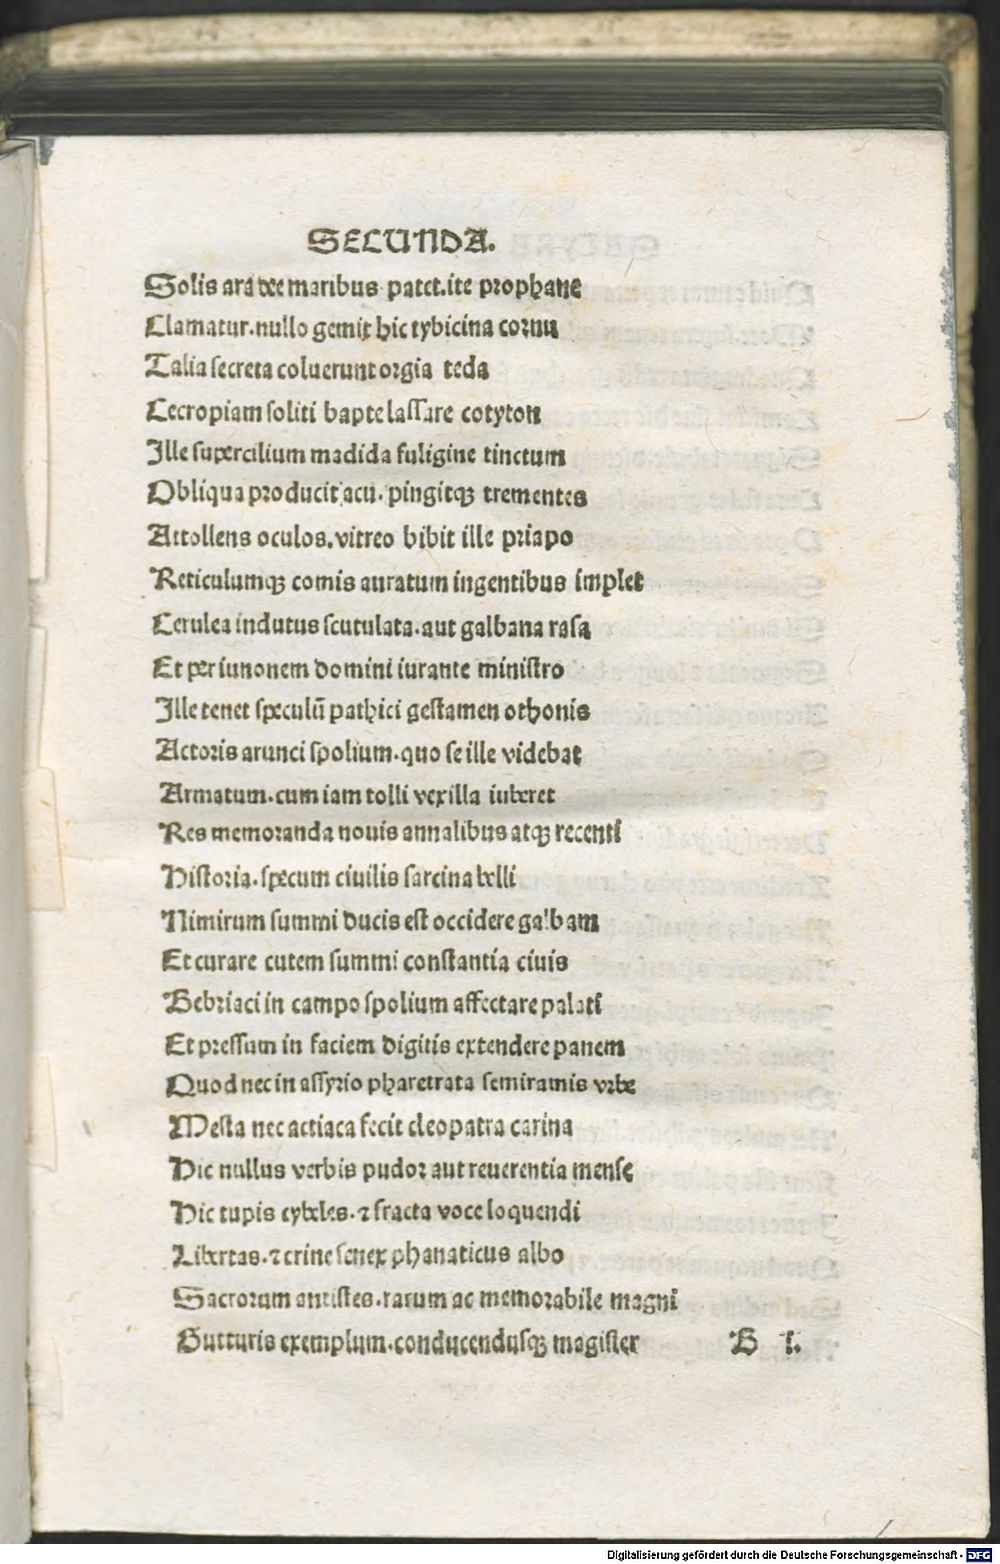 SECUNDA.
Solis ara dee maribus patet.ite prophane
Clamatur.nullo gemit hic tybicina cornu
Talia secreta coluerunt orgia teda
Cecropiam soliti bapte lassare cotyton
Ille supercilium madida fuligine tinctum
Obliqua producit acu. pingitqȝ trementes
Attollens oculos.vitreo bibit ille priapo
Reticulumqȝ comis auratum ingentibus implet
Cerulea indutus scutulata.aut galbana rasa
Et per iunonem domini iurante ministro
Ille tenet speculū pathici gestamen othonis
Actoris arunci spolium.quo se ille videbat
Armatum.cum iam tolli vexilla iuberet
Res memoranda nouis annalibus atqȝ recenti
Historia.specum ciuilis sarcina belli
Nimirum summi ducis est occidere galbam
Et curare cutem summi constantia ciuis
Bebriaci in campo spolium affectare palati
Et pressum in faciem digitis extendere panem
Quod nec in assyrio pharetrata semiramis vrbe
Mesta nec actiaca fecit cleopatra carina
Hic nullus verbis pudor aut reuerentia mense
Hic tupis cybeles.⁊ fracta voce loquendi
Libertas.⁊ crine senex phanaticus albo
Sacrorum antistes.rarum ac memorabile magni
Gutturis exemplum.conducendusqȝ magister B I.
Digitalisierung gefördert durch die Deutsche Forschungsgemeinschaft - DFG